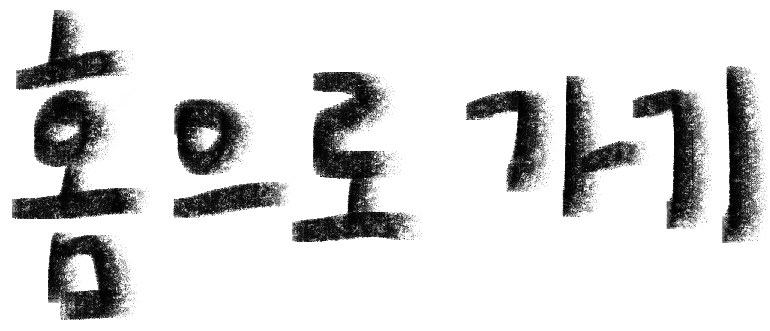 홈으로 가기